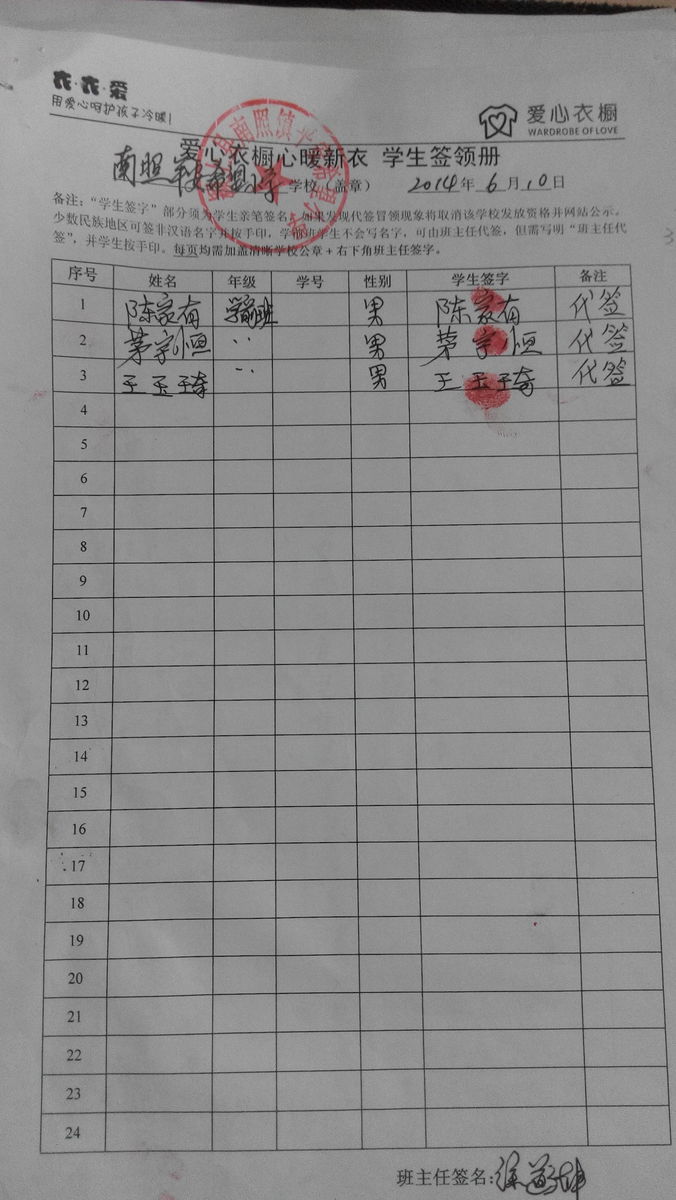 衣·衣·爱
用爱心呵护孩子冷暖!
爱心衣橱
WARDROBE OF LOVE
爱心衣橱心暖新衣 学生签领册
南照 学校（盖章） 2014年 6月10日
备注：“学生签字”部分须为学生亲笔签名，如果发现代签冒领现象将取消该学校发放资格并网站公示。
少数民族地区可签非汉语名字并按手印，学前班学生不会写名字，可由班主任代签，但需写明“班主任代
签”，并学生按手印。每页均需加盖清晰学校公章+右下角班主任签字。
序号 姓名 年级 学号 性别 学生签字 备注
1 陈家有 学前班 男 陈家有 代签
2 茅宇恒 ‥ 男 茅宇恒 代签
3 王玉琦 ‥ 男 王玉琦 代签
4
5
6
7
8
9
10
11
12
13
14
15
16
17
18
19
20
21
22
23
24
班主任签名: